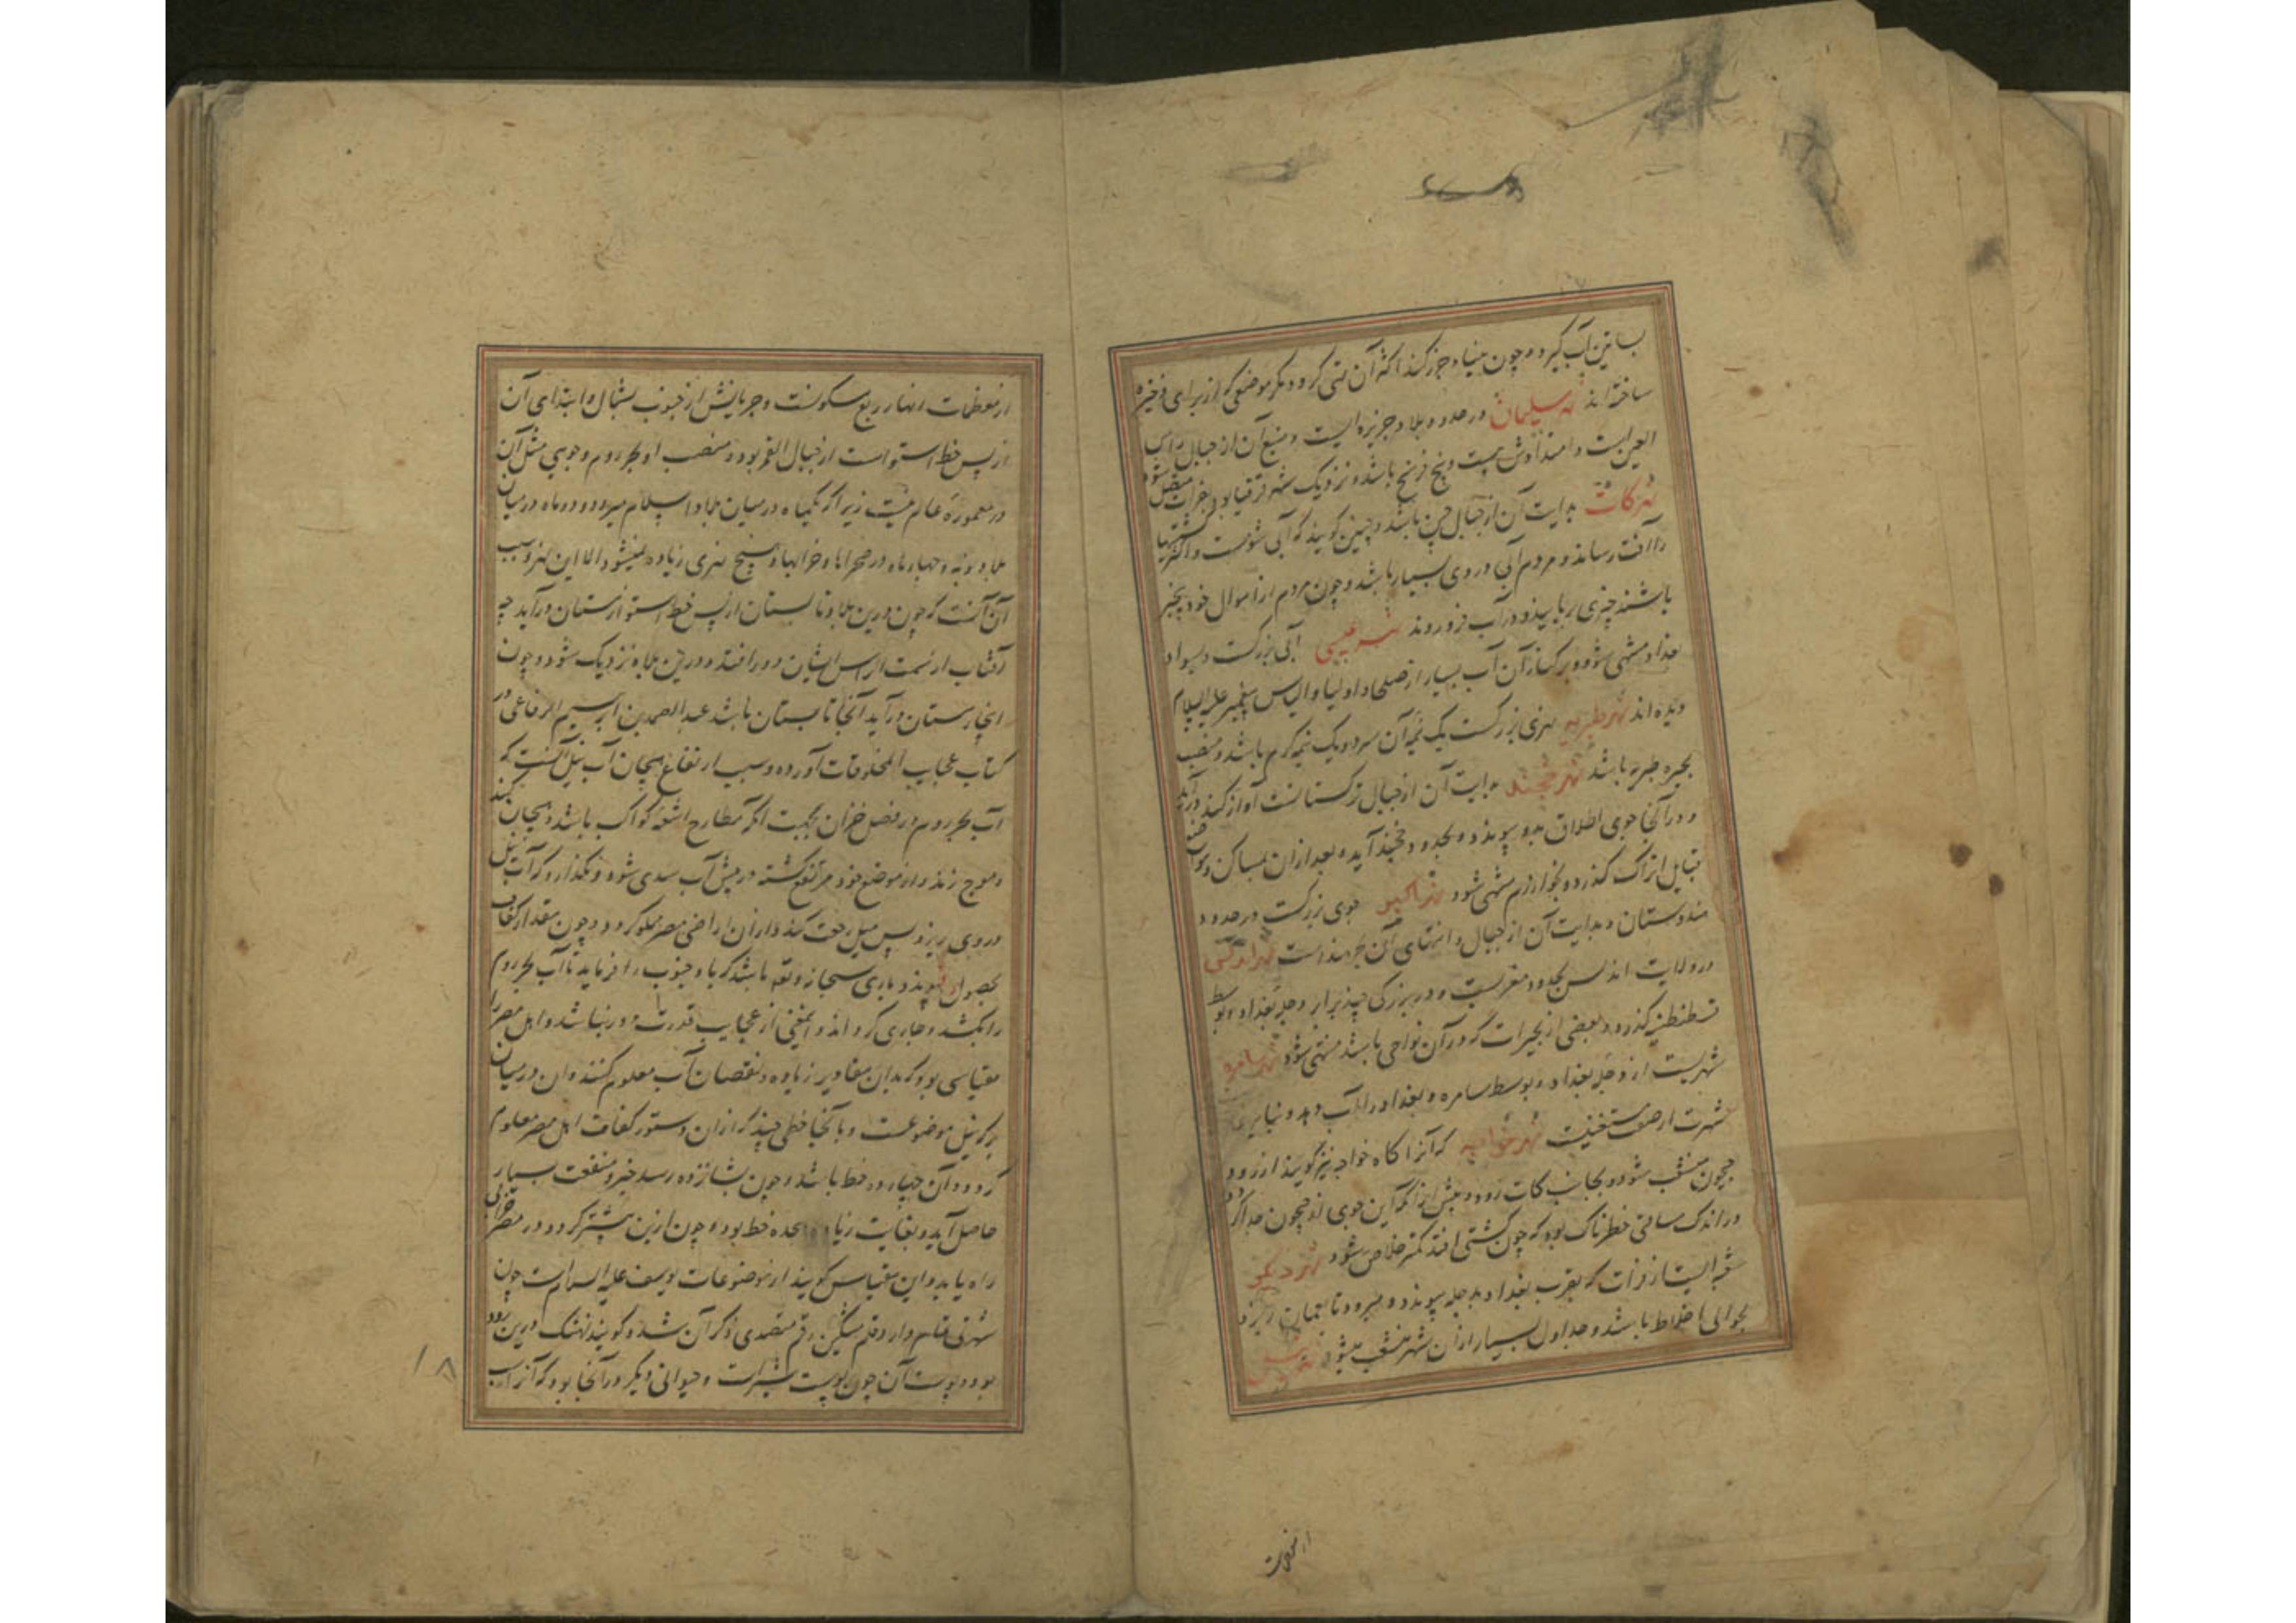 بساتین آب گیرد و چون بنیاد جزر کند اکثر آن تهی گردد مکر موضعی که از برای ذخیره
ساخته اند نهر سلیمان در حدود بلاد جزیره ایست و منبع آن از جبال راس
العین است و امتدادش بیست و پنج فرسخ باشد و نزدیک شهر قرقیا بفرات متصل شود
نهر کات بدایت آن از جبال چین باشد و چنین گویند که آبی شومست و اکثر کشتیها
را آفت رساند و مردم آبی در وی بسیار باشد و چون مردم از اموال خود بیخبر
باشند چیزی ربایند و در آب فرو روند نهر عیسی آبی بزرگست و بسواد
بغداد منتهی شود و بر کنار آن آب بسیار از صلحا و اولیا و الیاس پیغمبر علیه السلام
دیده اند نهر طبریه نهری بزرگست یک نیمه آن سرد و یک نیمه گرم باشد و منصب
بحیره طبریه باشد نهر خجند بدایت آن از جبال ترکستانست آواز کند درآید
و در آنجا جوی اطلاق بدو پیوندد و بحدود خجند آید و بعد از ان بمساکن و مواضع
قبایل اتراک گذرد و بخوارزم منتهی شود جوی بزرگست در حدود
هندوستان و بدایت آن از جبال و انتهای آن بحر هند است نهر اندلس
در ولایت اندلس بحدود مغربست و در بزرگی چند برابر دجله بغداد و بوسط
قسطنطنیه گذرد و ببعضی از بحیرات که در آن نواحی باشد منتهی شود نهر سامره
نهریست از دجله بغداد و بوسط سامره و بغداد را آب دهد و بنابر
شهرت از صفت مستغنیست نهر خواجه که آنرا کاه خواجه نیز گویند از رود
جیحون منشعب شود و بجانب کات رود و پیش از انکه این جوی از جیحون جدا گردد
در اندک مسافتی خطرناک بود که چون کشتی افتد کمتر خلاص شود نهر دیگر
شعبه ایست از فرات که بقرب بغداد بدجله پیوندد و میرود تا بعمان ریزد
بحوالی اخلاط باشد و جداول بسیار از ان نهر منشعب میشود نهر نیل
از معظمات
از معظمات انهار ربع مسکونست و جریانش از جنوب بشمال و ابتدای آن
از پس خط استواست از جبال القمر بود و منصب او بحر روم و جویی مثل آن
در معموره عالم نیست زیرا که یکماه در میان بلاد اسلام میرود و دو ماه در میان
بلاد نوبه و چهار ماه در صحراها و خرابها و هیچ نهری زیاده نمیشود الا این نهر و سبب
آن آنست که چون درین بلاد تابستان از پس خط استوا زمستان درآید چه
آفتاب از سمت الراس ایشان دور افتد و درین بلاد نزدیک شود و چون
اینجا زمستان درآید آنجا تابستان باشد عبد الصمد بن ابرهیم الرفاعی در
کتاب عجایب المخلوقات آورده و سبب ارتفاع هیجان آب نیل آنست که
آب بحر روم در فصل خزان بجهت انکه مطارح اشعه کواکب باشد و هیجان کند
و موج زند و از موضع خود مرتفع گشته در پیش آب سدی شود و نگذارد که آب نیل
در وی ریزد پس نیل رجعت کند و از ان اراضی مصر مملو گردد و چون مقدار کفاف
بحصول پیوندد باری سبحانه و تعالی باشد که باد جنوب را فرماید تا آب بحر روم
را بکشد و جاری گرداند و این معنی از عجایب قدرت دور نباشد و اهل مصر را
مقیاسی بود که بدان مقادیر زیاده و نقصان آب معلوم کنند و ان در میان
برکه نیل موضوعست و بآنجا خطی چند که از ان دستور کفاف اهل مصر معلوم
گردد و آن چهارده خط باشد و چون بشانزده رسد خیر و منفعت بسیار
حاصل آید و بغایت زیاده هجده خط بود و چون ازین بیشتر گردد در مصر خرابی
راه یابد و این مقیاس گویند از موضوعات یوسف علیه السلام است چون
شهرتی تمام دارد قلم مشکین رقم متصدی ذکر آن نشد و گویند نهنگ درین رود
بود و پوست آن چون پوست شیر است و حیوانی دیگر در آنجا بود که آنرا اسب
۱۸